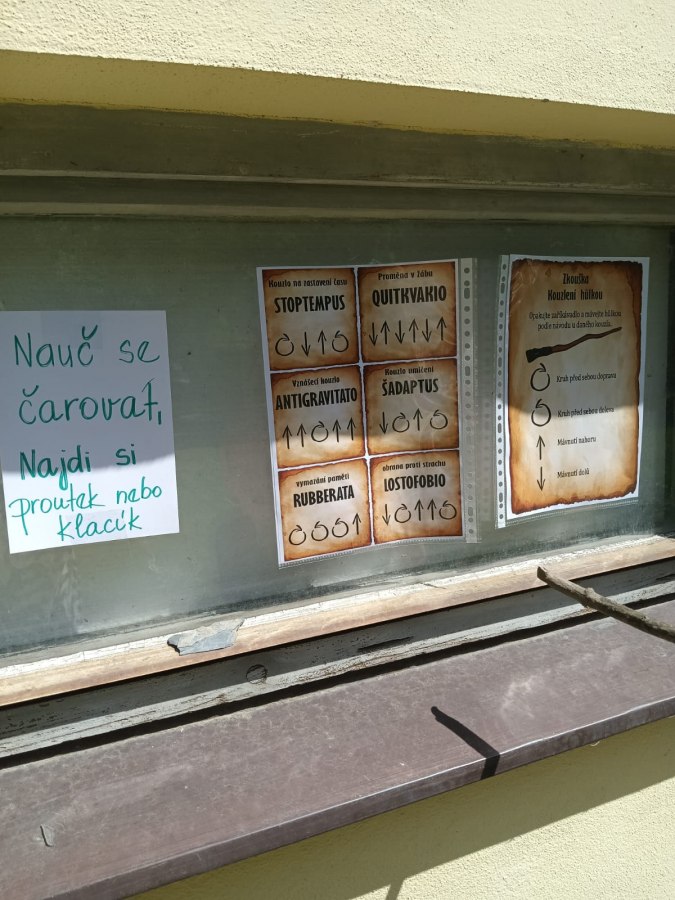 Nauč se
čarovat,
Najdi si
proutek nebo
klacík
Kouzlo na zastavení času
STOPTEMPUS
Proměna v žábu
QUITKVAKIO
Vznášecí kouzlo
ANTIGRAVITATO
Kouzlo umlčení
ŠADAPTUS
vymazání paměti
RUBBERATA
obrana proti strachu
LOSTOFOBIO
Zkouška
Kouzlení hůlkou
Opakujte zaříkávadlo a mávejte hůlkou
podle návodu u daného kouzla.
Kruh před sebou doprava
Kruh před sebou doleva
Mávnutí nahoru
Mávnutí dolů